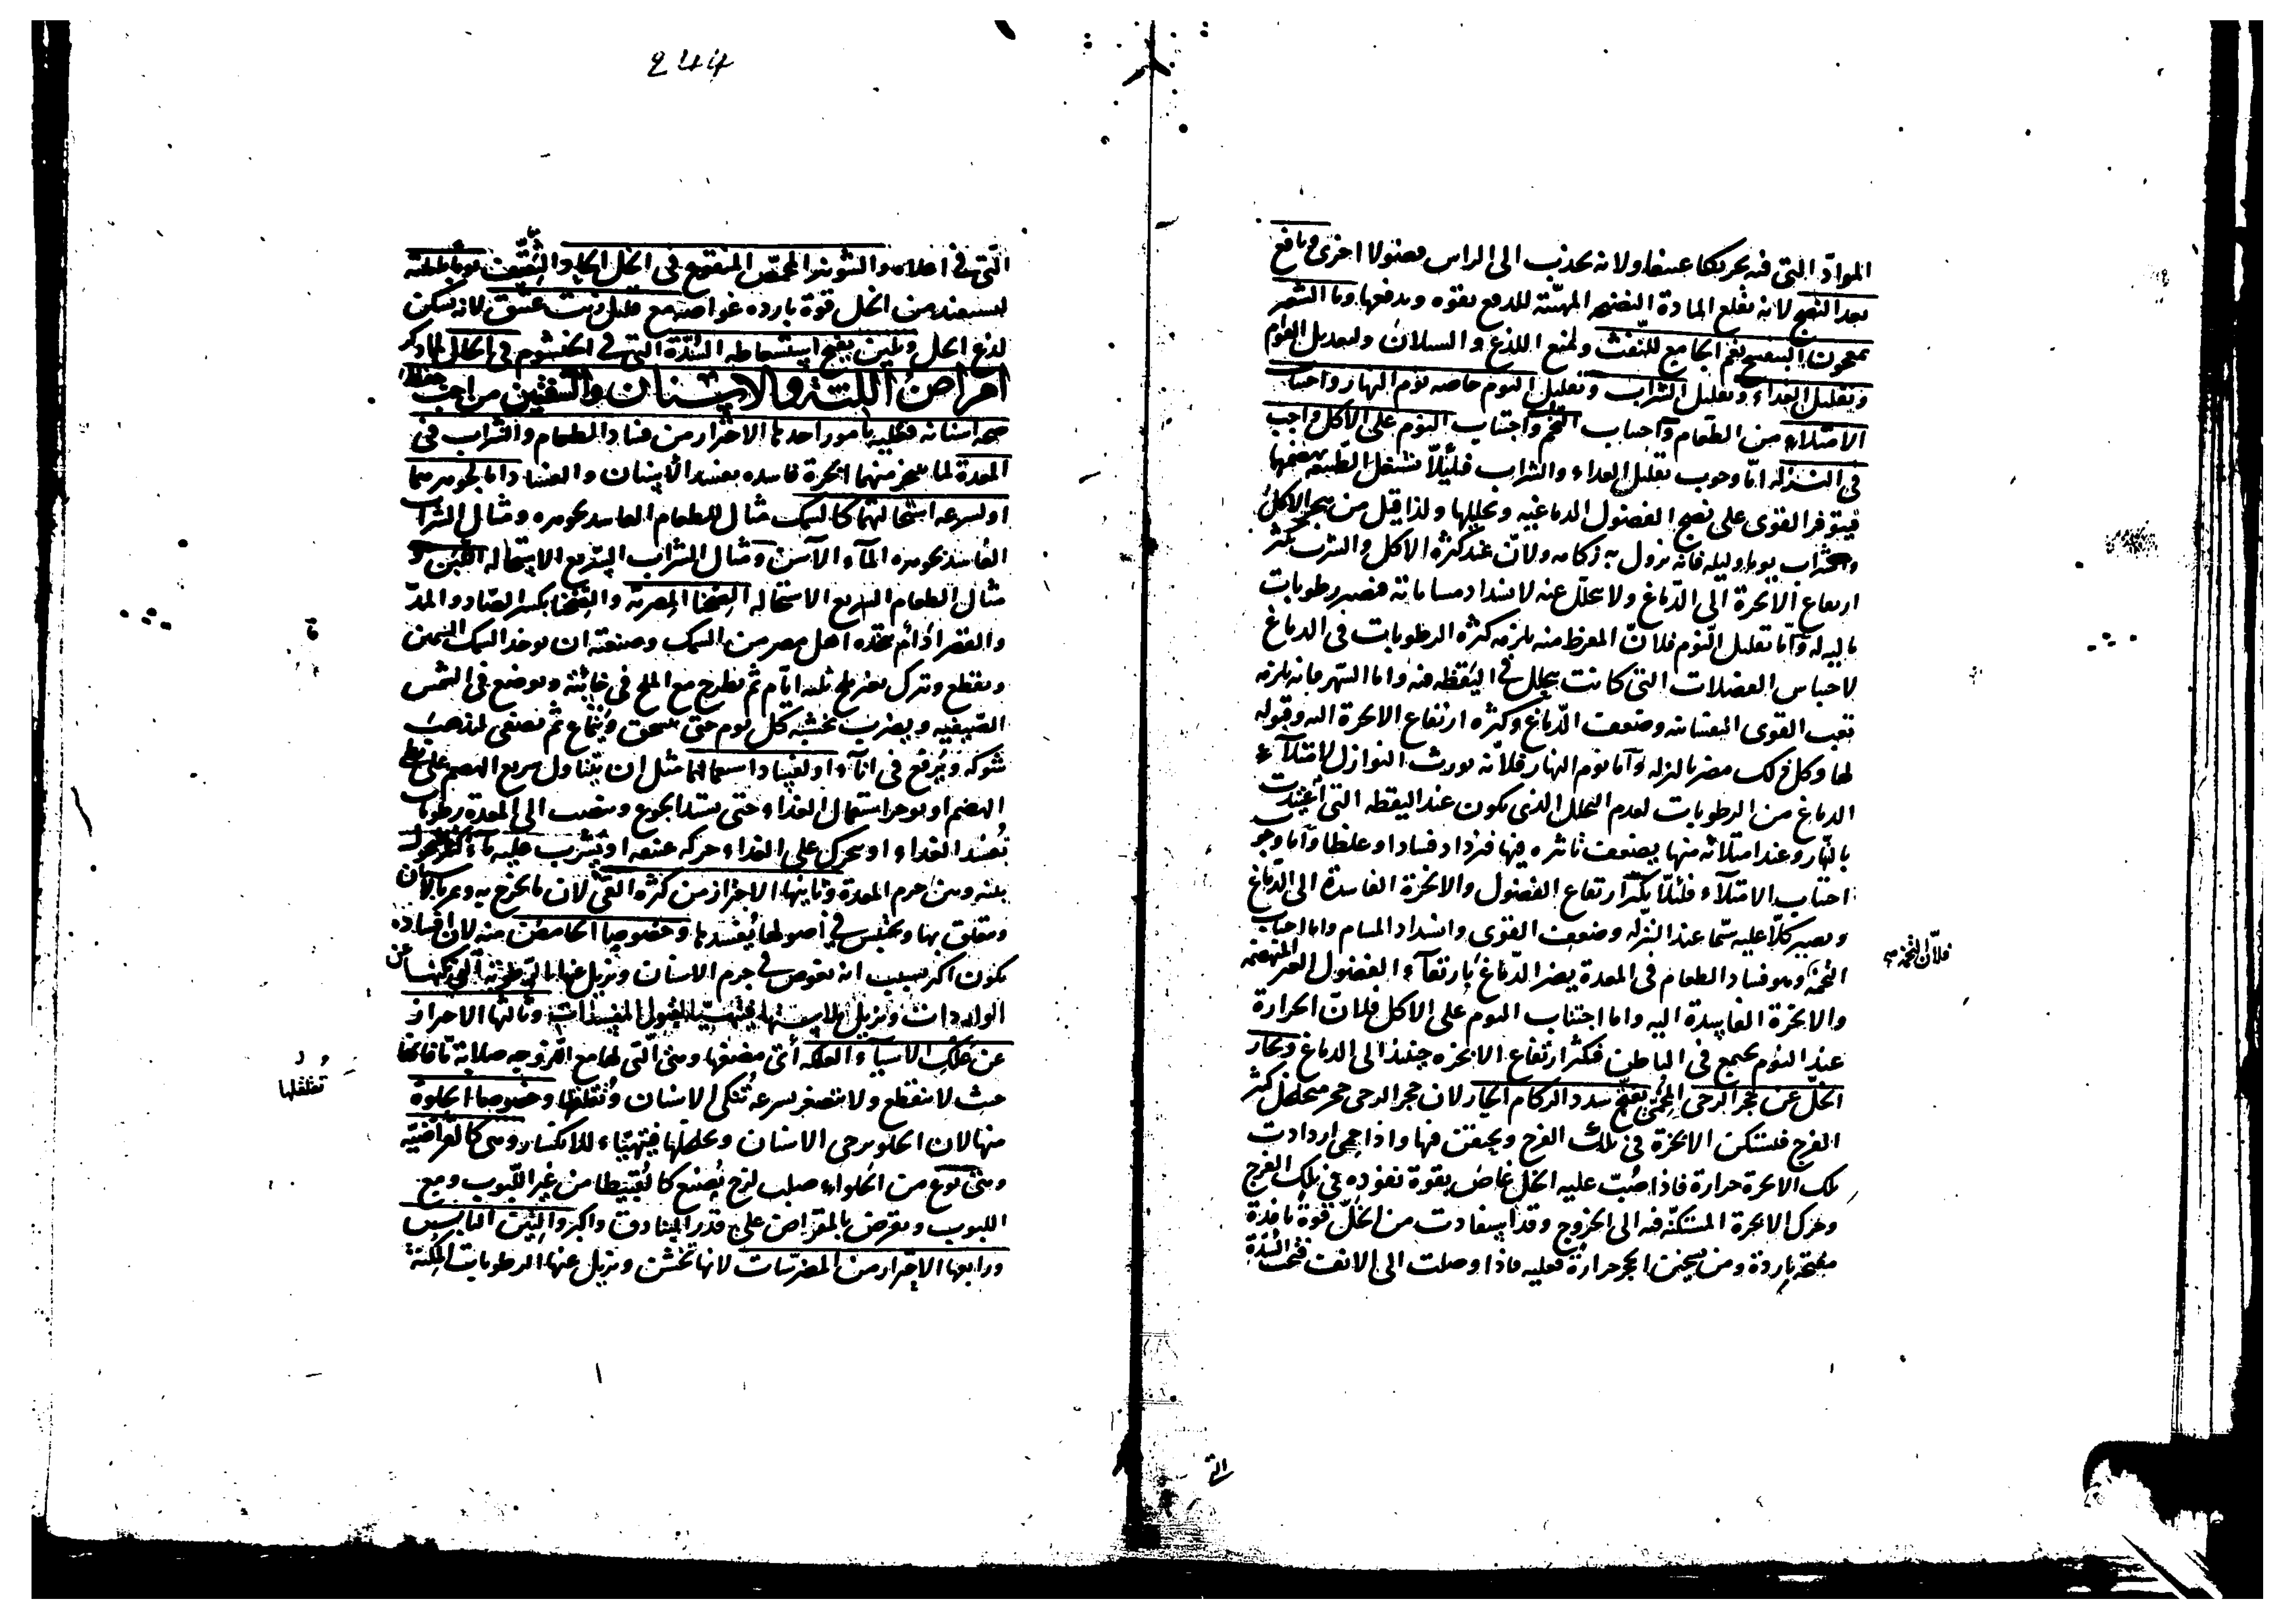 المواد التي فيه تحريكا عنيفا ولانه يجذب الى الراس فضولا اخرى ونافع
بعد النضج لانه يقلع المادة النضجه المهيئة للدفع بقوه ويدفعها وماء الشعير
بمعجون البنفسج نعم الجامع للنفث ولمنع اللذع والسيلان ولتعديل القوام
وتقليل الغداء وتقليل الشراب وتقليل النوم خاصه نوم النهار واجتناب
الامتلاء من الطعام واجتناب التخم واجتناب النوم على الاكل واجب
في النزله اما وجوب تقليل الغداء والشراب فلئلا تشتغل الطبيعه بهضمها
فيتوفر القوى على نضج الفضول الدماغيه وتحليلها ولذا قيل من هجر الاكل
والشراب يوما وليله فانه يزول به زكامه ولان عند كثرة الاكل والشرب يكثر
ارتفاع الابخرة الى الدماغ ولا يتحلل عنه لانسداد مساماته فتصير رطوبات
ماليه له واما تقليل النوم فلان المفرط منه يلزمه كثره الرطوبات في الدماغ
لاحتباس الفضلات التي كانت يتحلل في اليقظه فيه واما السهر فانه يلزمه
تعب القوى النفسانيه وضعف الدماغ وكثره ارتفاع الابخرة اليه وقبوله
لها وكل ذلك مضر بالنزله واما نوم النهار فلانه يورث النوازل لامتلاء
الدماغ من الرطوبات لعدم التحلل الذي يكون عند اليقظه التي اعتيدت
بالنهار وعند امتلائه منها يضعف تاثيره فيها فيزداد فسادا وغلظا واما وجوب
اجتناب الامتلاء فلئلا يكثر ارتفاع الفضول والابخرة الفاسدة الى الدماغ
ويصير كلا عليه سيما عند النزله وضعف القوى وانسداد المسام واما اجتناب
التخمه وهو فساد الطعام في المعدة يضر الدماغ بارتقاء الفضول الغير المنهضمه
فلان التخمه
والابخرة الفاسدة اليه واما اجتناب النوم على الاكل فلان الحرارة
عند النوم يجتمع في الباطن فيكثر ارتفاع الابخره حينئذ الى الدماغ وبخار
الخل عن حجر الرحى المحمى يفتح سدد الزكام الحار لان حجر الرحى حجر متخلخل كثير
الفرج فتستكن الابخرة في تلك الفرج ويحتقن فيها واذا حمى ازدادت
تلك الابخرة حرارة فاذا صب عليه الخل غاص بقوة نفوذه في تلك الفرج
وحرك الابخرة المستكنه فيه الى الخروج وقد استفادت من الخل قوة نافذة
مفتحه باردة ومن تسخين الحجر حرارة فعليه فاذا وصلت الى الانف فتحت السدة
التي
244
التي في اعلاه والشونيز المحمص المنقوع في الخل الحاد الثقيف يوما بليلته
ليستفيد من الخل قوة بارده غواصه مع قليل زيت عتيق لانه يسكن
لذع الخل ويلين يفتح استنشاقه السدة التي في الخيشوم في الحال لما ذكر
امراض اللثة والاسنان والشفتين من احب حفظ
صحه اسنانه فعليه بامور احدها الاحتراز من فساد الطعام والشراب في
المعدة لما يتبخر منهما ابخرة فاسده يفسد الاسنان والفساد اما لجوهرهما
او لسرعه استحالتهما كالسمك مثال للطعام الفاسد بجوهره ومثال الشراب
الفاسد بجوهره الماء الآسن ومثال الشراب السريع الاستحاله اللبن و
مثال الطعام السريع الاستحاله الصحنا المصرية والصحنا بكسر الصاد والمد
والقصر ادام يتخذه اهل مصر من السمك وصنعته ان يوخذ السمك السمين
ويقطع ويترك بغير ملح ثلثه ايام ثم يطرح مع الملح في خابئة ويوضع في الشمس
الصيفيه ويضرب بخشبه كل يوم حتى ينسحق وينماع ثم يصفى ليذهب
شوكه ويرفع في اناء او لفساد استعمالهما مثل ان يتناول سريع الهضم على بطي
الهضم او يوخر استعمال الغداء حتى يشتد الجوع وينصب الى المعدة رطوبات
تفسد الغداء او يتحرك على الغداء حركه عنيفه او يشرب عليه ماء كثير يحول
بينه وبين جرم المعدة وثانيها الاحتراز من كثره القى لان ما يخرج به ويمر بالاسنان
ويتعلق بها ويحتبس في اصولها يفسدها وخصوصا الحامض منه لان افساده
يكون اكثر بسبب انه يغوص في جرم الاسنان ويزيل عنها الرطوبة التي تكنها عن
الواردات ويزيل ملاستها فيتهيا لقبول المفسدات وثالثها الاحتراز
عن علك الاشياء العلكه أي مضغها وهي التي لها مع اللزوجه صلابة ما فانها
حيث لا ينقطع ولا يتصغر بسرعه تنكى الاسنان وتقلقلها وخصوصا الحلوة
تقلقلها
منها لان الحلو يرخى الاسنان ويخلخلها فيتهياء للانكسار وهي كالقراضيه
وهي نوع من الحلواء صلب لزج يصنع كالقبيطا من غير اللبوب ومع
اللبوب ويقرض بالمقراض على قدر البنادق واكبر والتين اليابس
ورابعها الاحتراز من المضرسات لانها تخشن ويزيل عنها الرطوبات المكنة